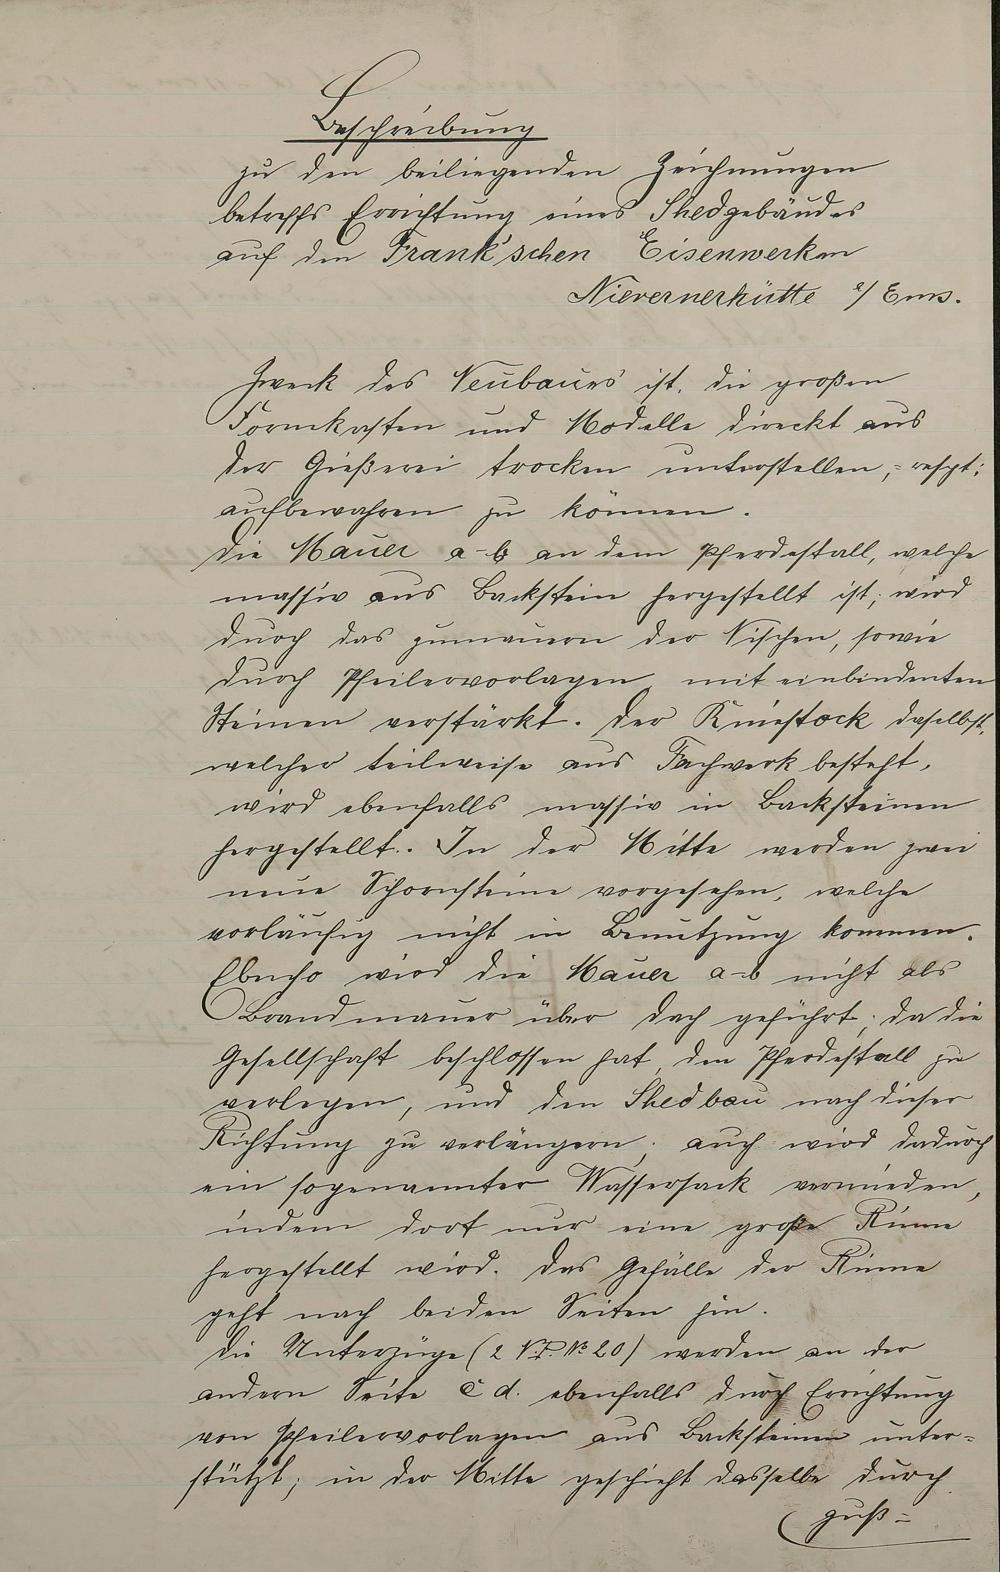 Beschreibung
zu den beiliegenden Zeichnungen
betreffs Errichtung eines Shedgebäudes
auf den Frank'schen Eisenwerken
Nievernerhütte b/ Ems.
Zweck des Neubaues ist, die großen
Formkasten und Modelle direckt aus
der Gießerei trocken unterstellen, respt:
aufbewahren zu können.
Die Mauer a-b an dem Pferdestall, welche
massiv aus Backstein hergestellt ist, wird
durch das zumauern der Nischen, sowie
durch Pfeilervorlagen mit einbindenten
Steinen verstärkt. Der Kniestock daselbst,
welcher teilweise aus Fachwerk besteht,
wird ebenfalls massiv in Backsteinen
hergestellt. In der Mitte werden zwei
neue Schornsteine vorgesehen, welche
vorläufig nicht in Benutzung kommen.
Ebenso wird die Mauer a-b nicht als
Brandmauer über Dach geführt, da die
Gesellschaft beschlossen hat, den Pferdestall zu
verlegen, und den Shedbau nach dieser
Richtung zu verlängern; auch wird dadurch
ein sogenannter Wassersack vermieden,
indem dort nur eine große Rinne
hergestellt wird. Das Gefälle der Rinne
geht nach beiden Seiten hin.
Die Unterzüge (2 N.P. No 20) werden an der
andern Seite c d. ebenfalls durch Errichtung
von Pfeilervorlagen aus Backsteinen unter=
stützt; in der Mitte geschieht dasselbe durch
guß=